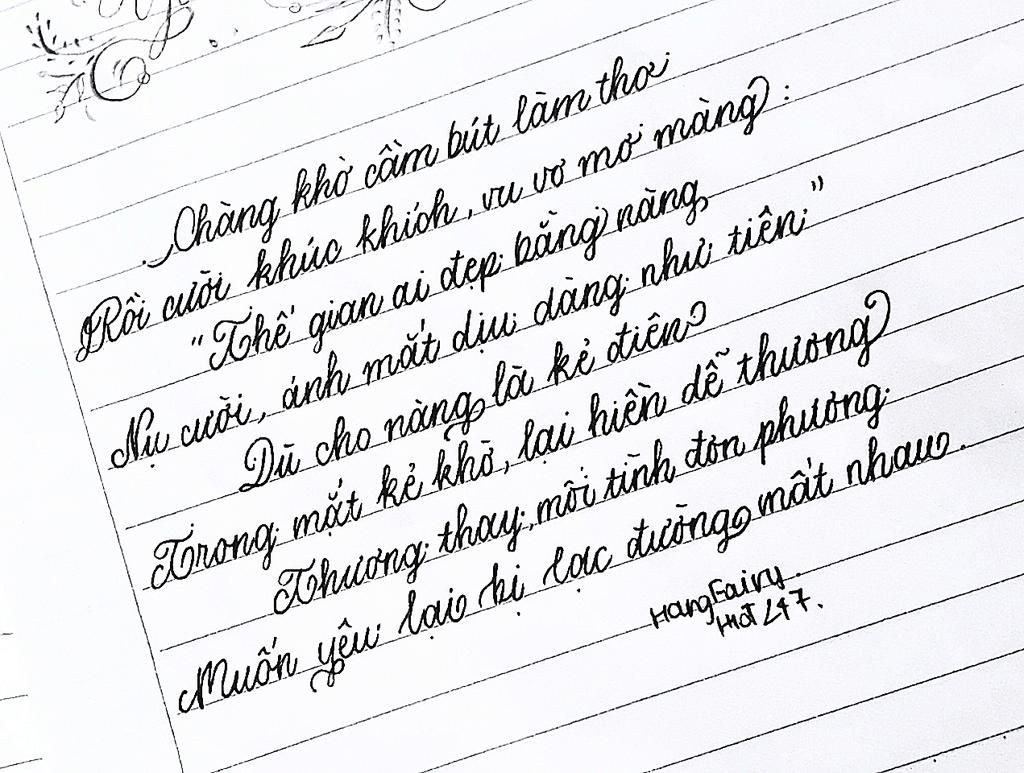 Chàng khờ cầm bút làm thơ
Rồi cười khúc khích, vu vơ mơ màng :
"Thế gian ai đẹp bằng nàng
Nụ cười, ánh mắt dịu dàng như tiên."
Dù cho nàng là kẻ điên
Trong mắt kẻ khờ, lại hiền dễ thương
Thương thay, mối tình đơn phương
Muốn yêu lại bị lạc đường mất nhau.
HangFairy.